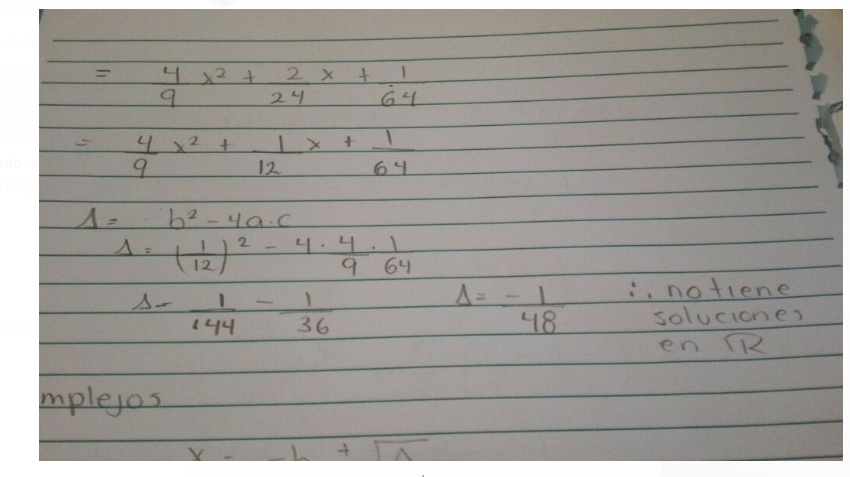 = 4/9 x² + 2/24 x + 1/64
= 4/9 x² + 1/12 x + 1/64
Δ = b² - 4a·c
Δ = (1/12)² - 4 · 4/9 · 1/64
Δ = 1/144 - 1/36 Δ = -1/48 ∴ no tiene
soluciones
en ℝ
mplejos